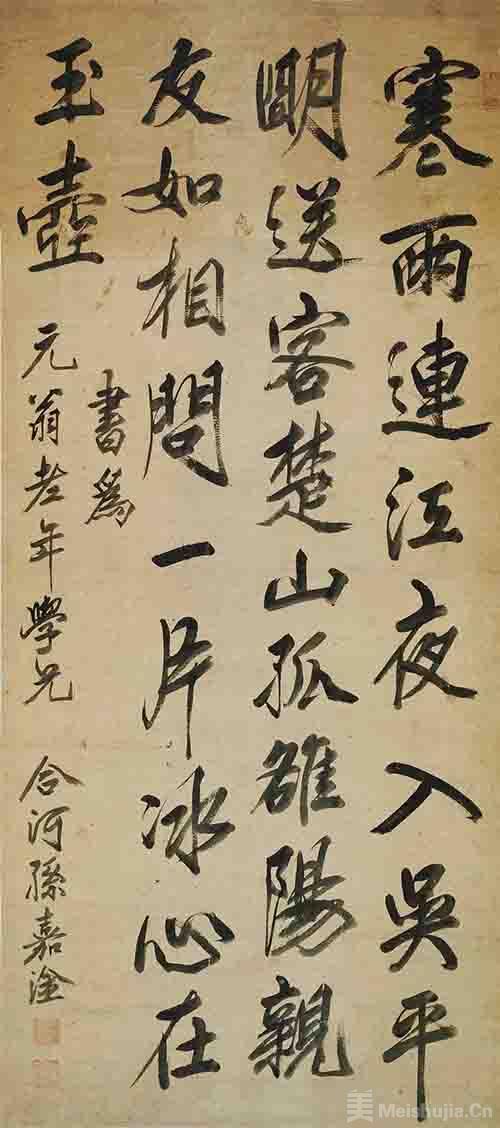 寒雨連江夜入吳平
朙送客楚山孤雒陽親
友如相問一片冰心在
玉壺
書爲
元翁老年學兄 合河孫嘉淦
美 Meishujia.Cn